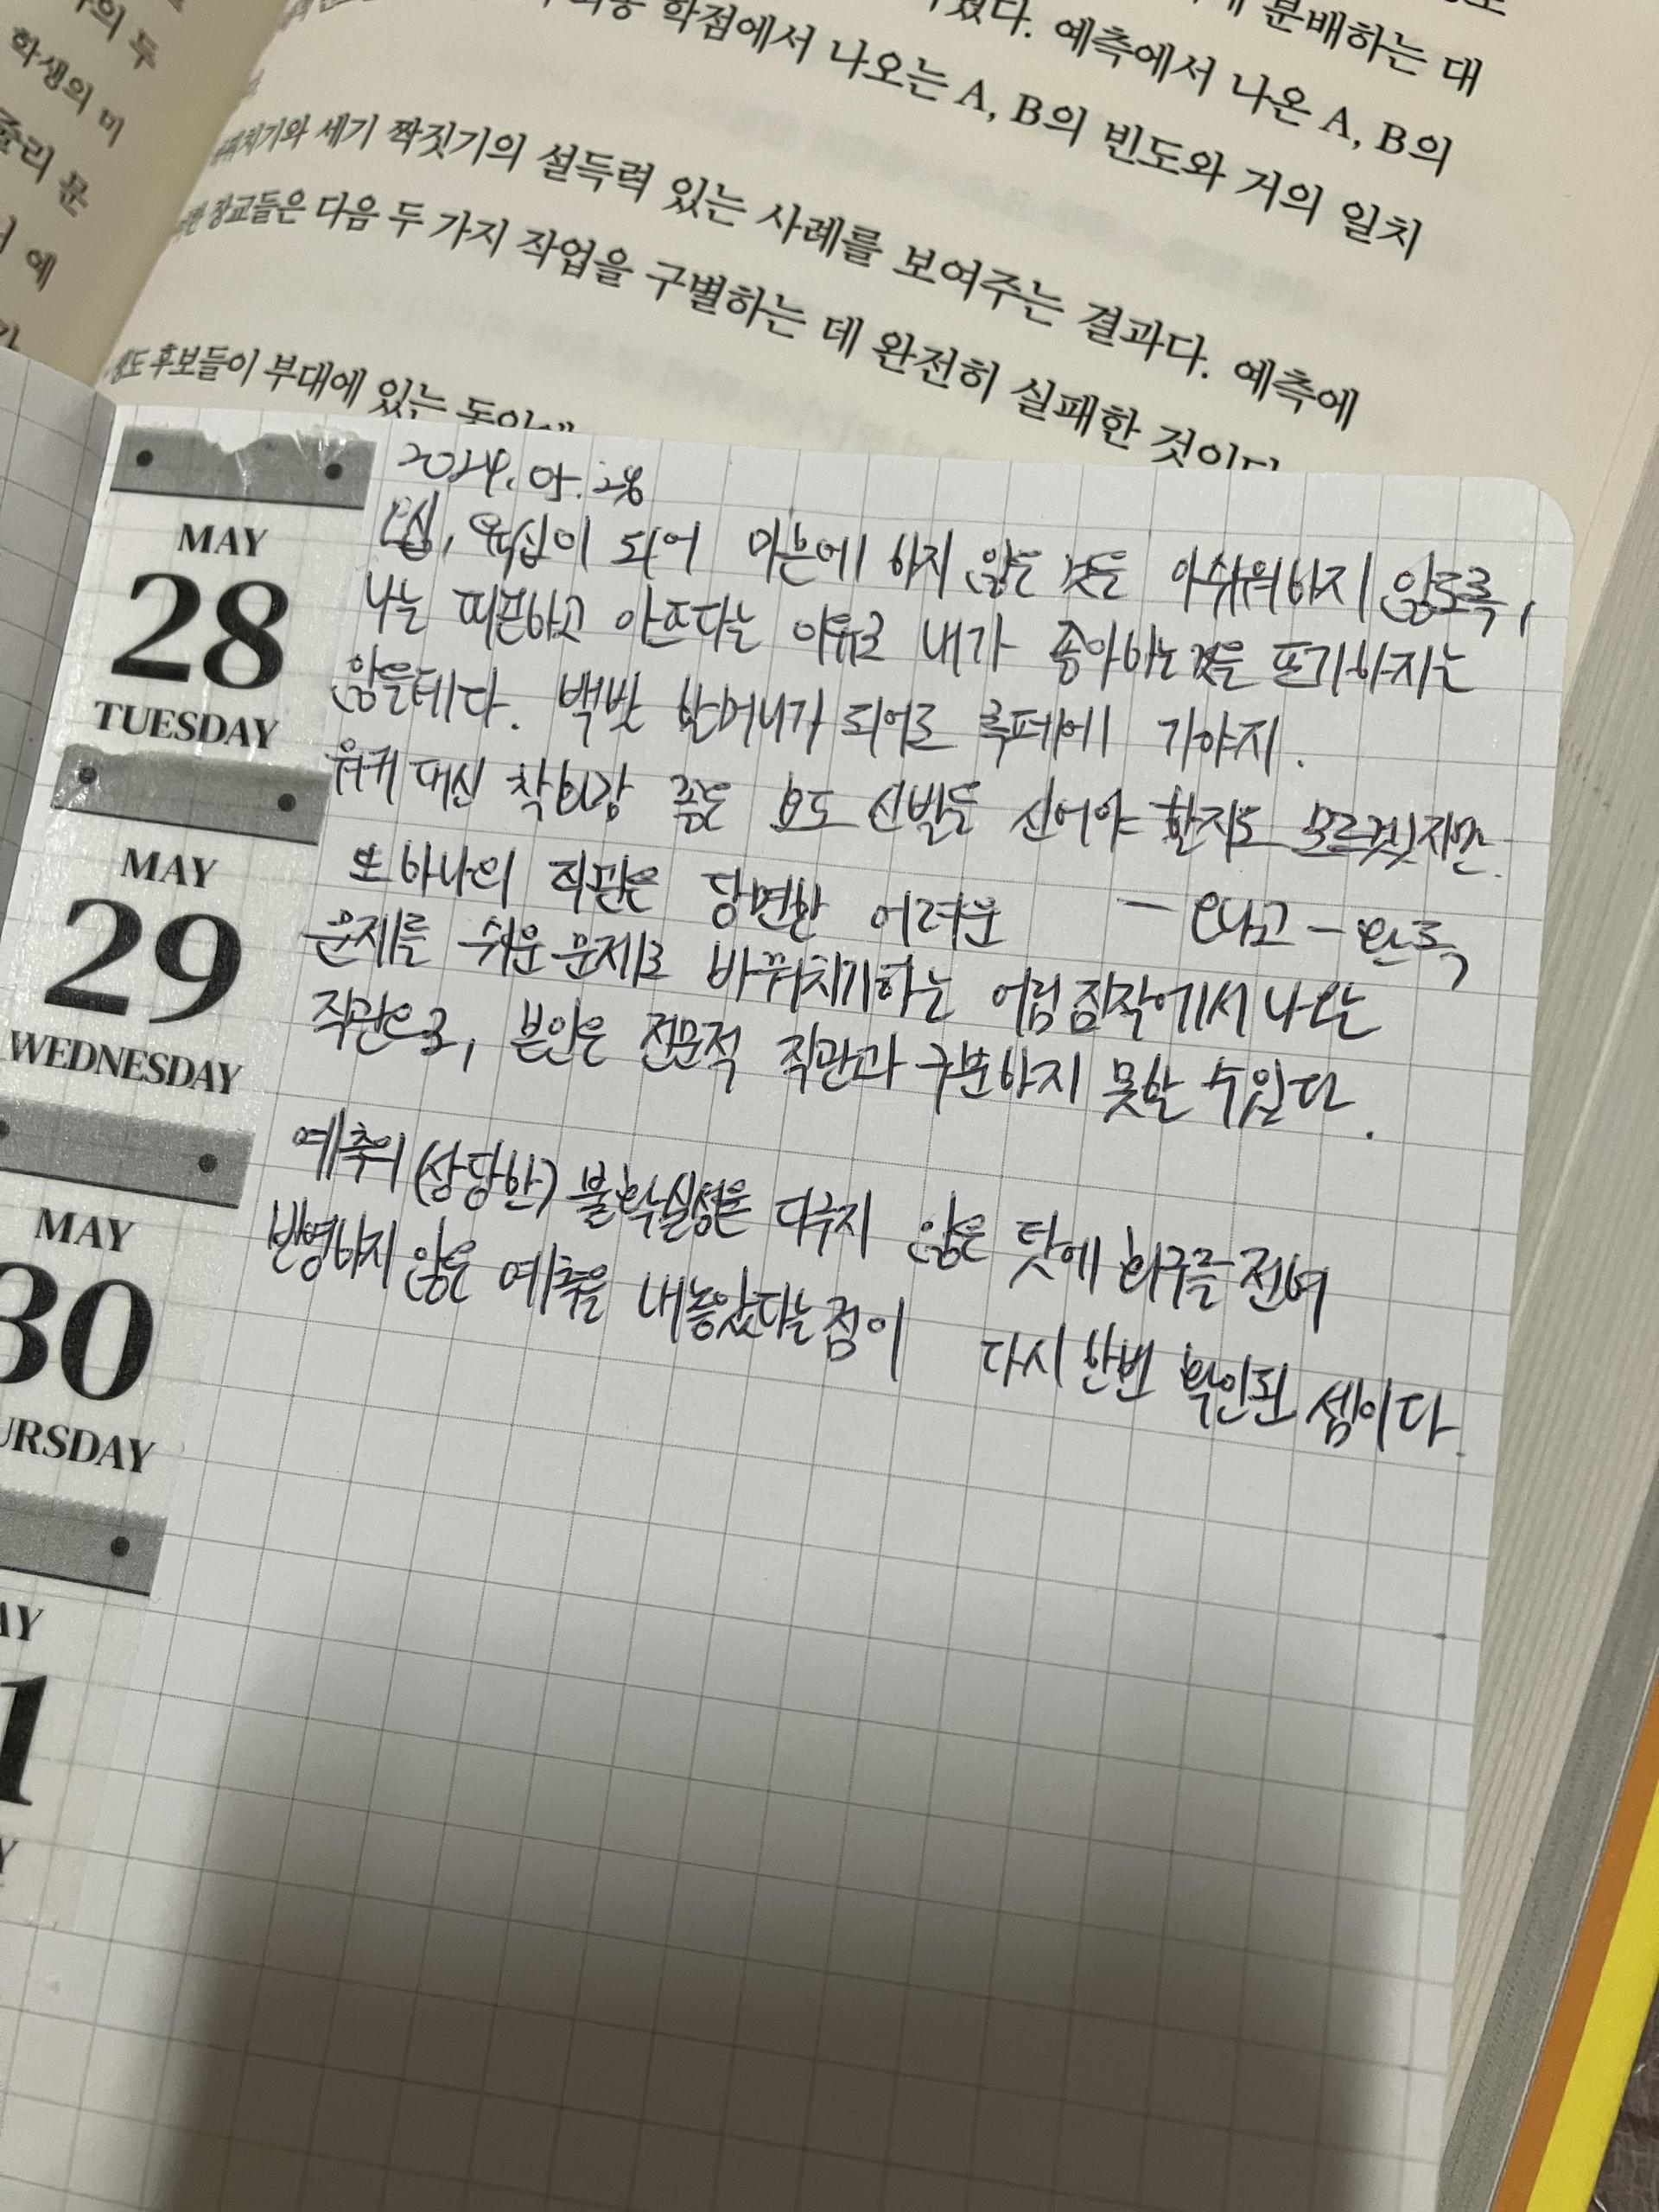 의 두
학생의 비
줄리 문
에
분배하는 대
예측에서 나온 A, B의
학점에서 나오는 A, B의 빈도와 거의 일치
세기 짝짓기의 설득력 있는 사례를 보여주는 결과다. 예측에
장교들은 다음 두 가지 작업을 구별하는 데 완전히 실패한 것이다
후보들이 부대에 있는 동안에
2024. 05. 28
오십, 육십이 되어 마흔에 하지 않은 것을 아쉬워하지 않도록,
나는 피곤하고 아프다는 이유로 내가 좋아하는 것을 포기하지는
않을테다. 백발 할머니가 되어도 루페에 가야지.
워커 대신 착화감 좋은 효도 신발을 신어야 할지도 모르겠지만.
또 하나의 직관은 당면한 어려운
문제를 쉬운 문제로 바꿔치기하는 어림짐작에서 나오는
직관으로, 본인은 전문적 직관과 구분하지 못할 수 있다.
예측의 (상당한) 불확실성을 다루지 않은 탓에 회귀를 전혀
반영하지 않은 예측을 내놓았다는 점이 다시 한번 확인된 셈이다.
MAY
28
TUESDAY
MAY
29
WEDNESDAY
MAY
30
URSDAY
AY
1
Y